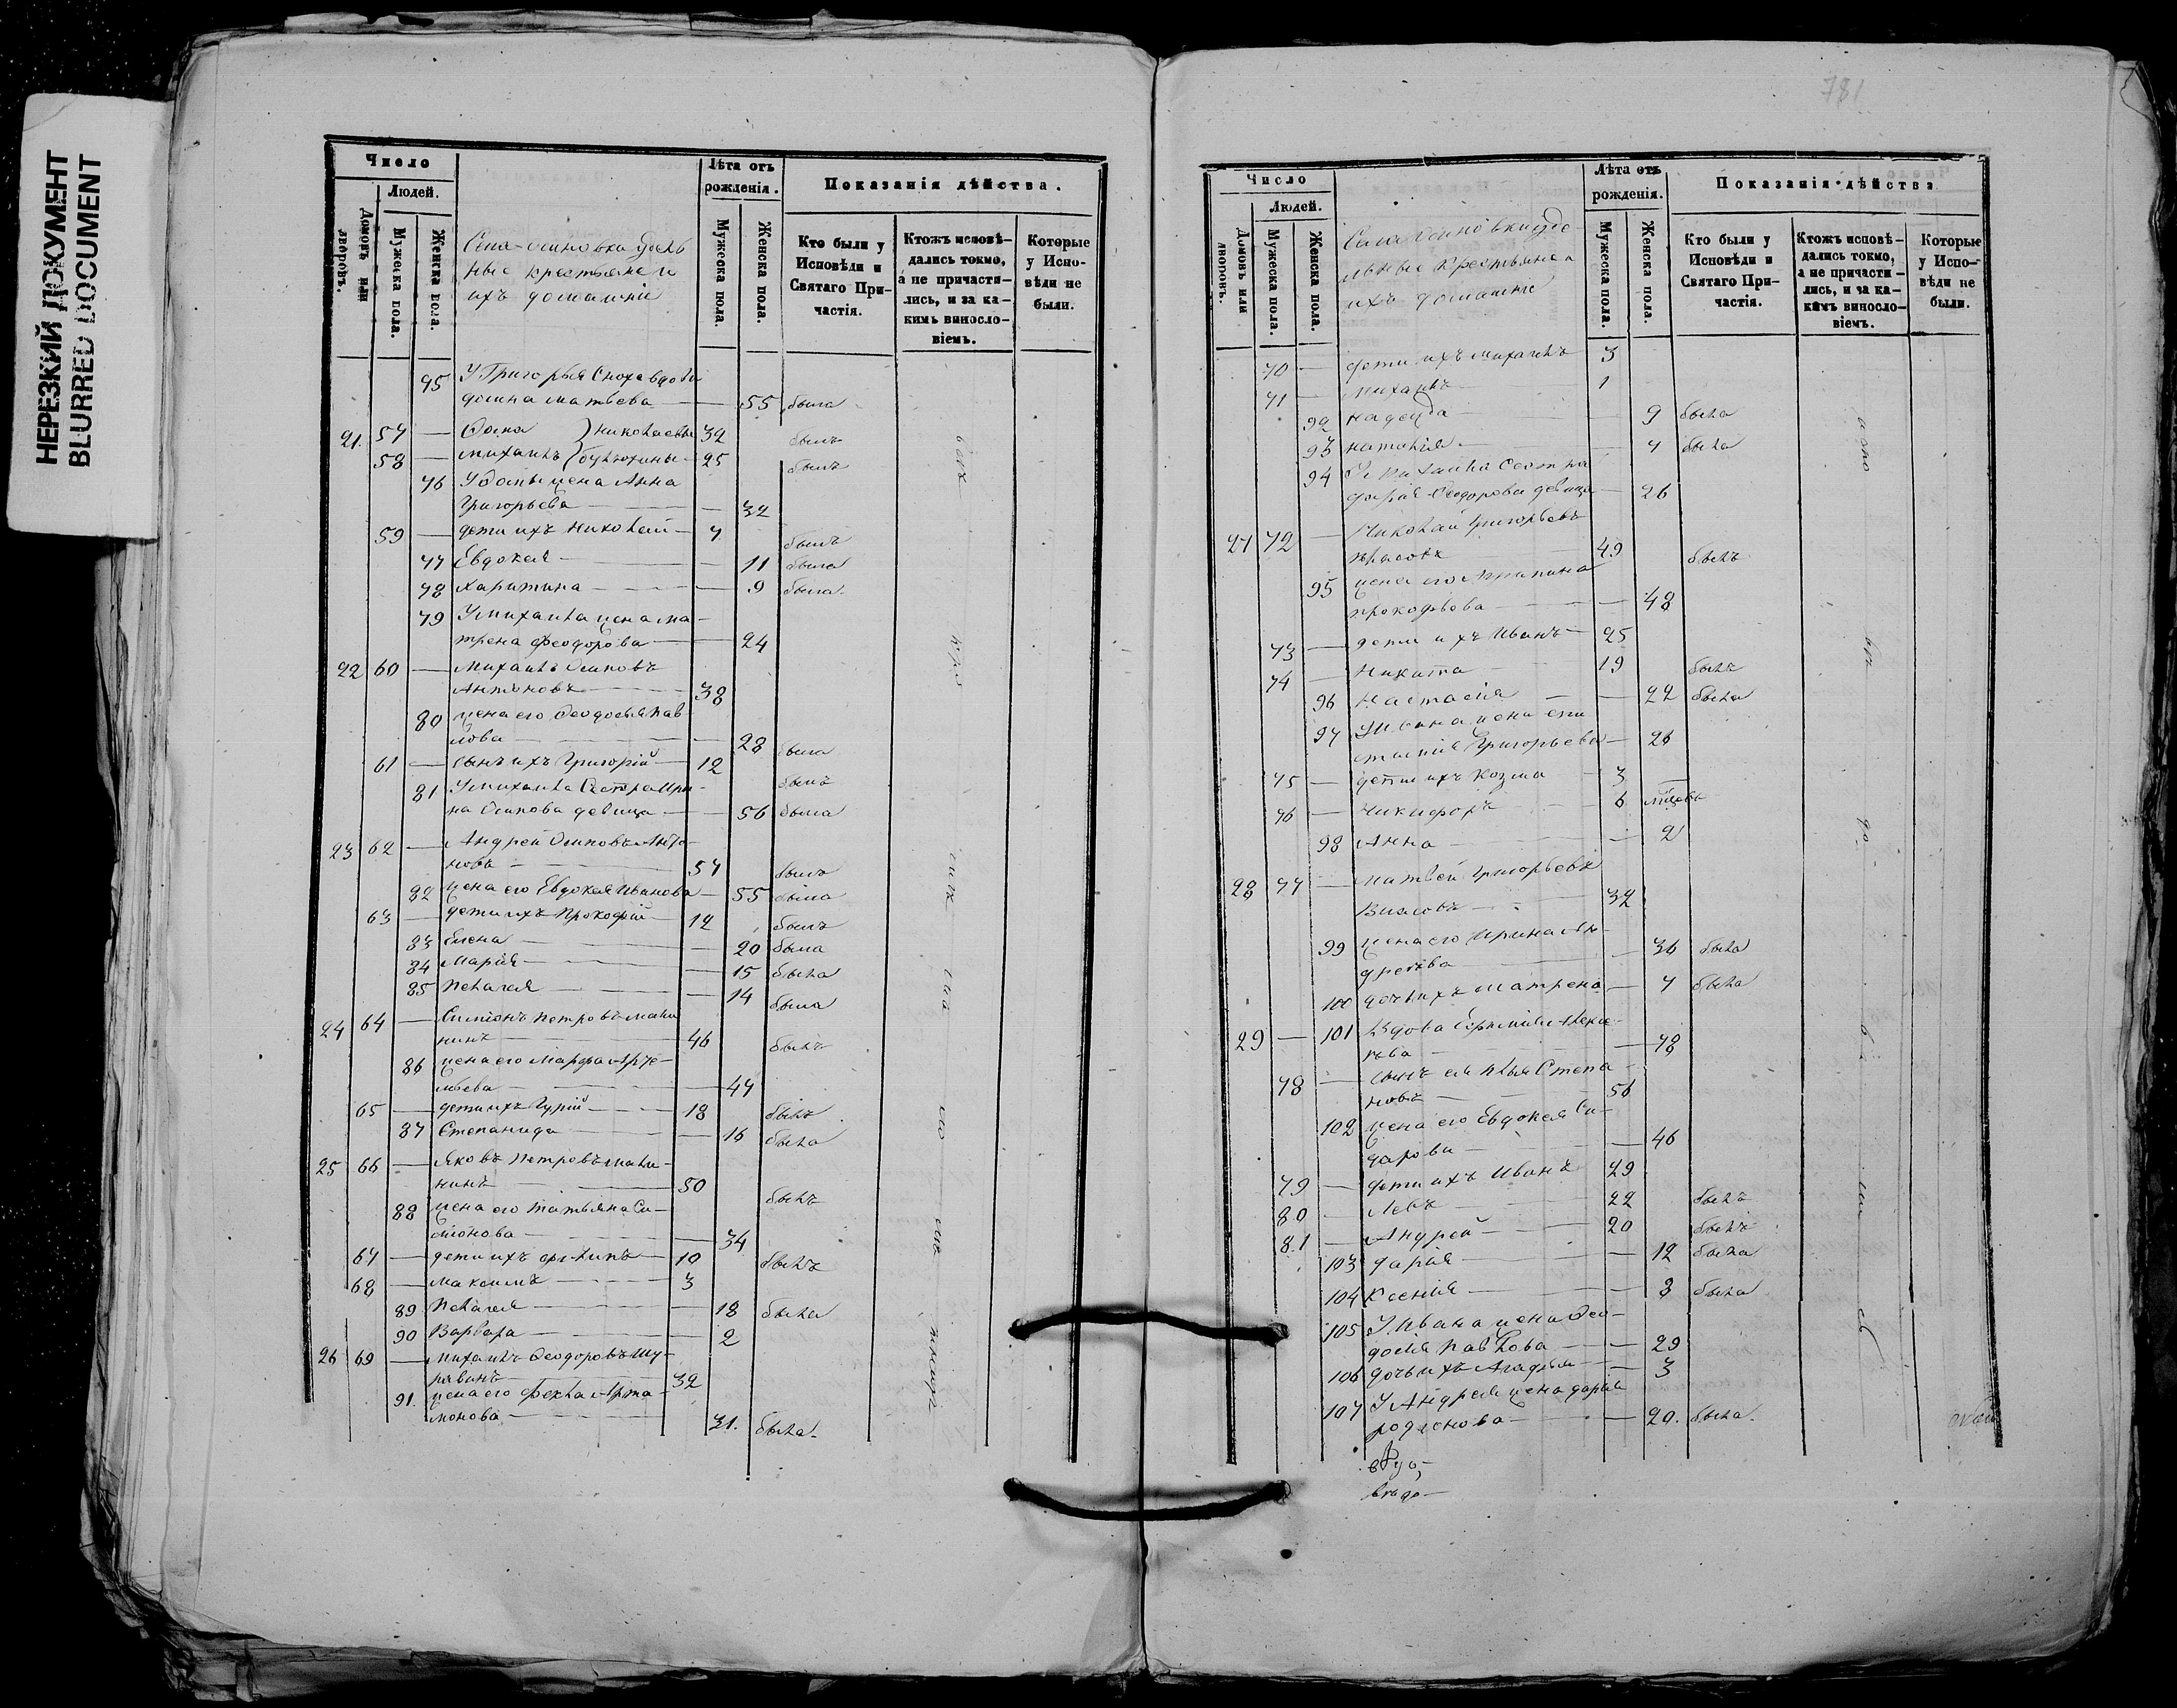 НЕРЕЗКИЙ ДОКУМЕНТ
BLURRED DOCUMENT
Число
Лѣта отъ рожденія.
Показанія дѣйства.
Людей.
Домовъ или дворовъ.
Мужеска пола.
Женска пола.
Села Осиновки удель
ные крестьяне и
ихъ домашніе
Мужеска пола.
Женска пола.
Кто были у Исповѣди и Святаго Причастія.
Ктожъ исповѣдались токмо, а не причастились, и за какимъ винословіемъ.
Которые у Исповѣди не были.
95 У Григорья Сноха вдова
Матвева — 55 была
21. 57 — Фома } Николаевы 32 былъ
58 — Михаилъ 25 былъ
76 У Фомы жена Анна
Григорьева — 32
59 — дети ихъ Николай — 7 былъ
77 Евдокея — 11 была
78 Харитина — 9 была
79 У Михаила жена Ма-
трена Феодорова — 24
22 60 — Михаилъ Осиповъ
Антоновъ — 38
80 жена его Феодосья Пав
лова — 28 была
61 — сынъ ихъ Григорій — 12 былъ
81 У Михаила Сестра Ири-
на Осипова девица — 56 была
23 62 — Андрей Осиповъ Анто-
новъ — 57 былъ
82 жена его Евдокея Иванова — 55 была
63 — дети ихъ Прокофій — 12 былъ
83 Елена — 20 была
84 Марія — 15 была
85 Пелагея — 14 была
24 64 — Симіонъ Петровъ Мали
нинъ — 46 былъ
86 жена его Марфа Арте-
мьева — 47
65 — дети ихъ Гурій — 18 былъ
87 Степанида — 16 была
25 66 — Яковъ Петровъ Мали-
нинъ — 50 былъ
88 жена его Татьяна Си-
міонова — 34
67 — дети ихъ Филипъ — 10 былъ
68 — Максимъ — 3
89 Пелагея — 18 была
90 Варвара — 2
26 69 — Михаилъ Феодоровъ Шу-
равинъ — 32
91. жена его Фекла Арта-
монова — 31. была.
781
Число
Лѣта отъ рожденія.
Показанія дѣйства
Людей.
Домовъ или дворовъ.
Мужеска пола.
Женска пола.
Села Осиновки уде
льные крестьяне и
ихъ домашніе
Мужеска пола.
Женска пола.
Кто были у Исповѣди и Святаго Причастія.
Ктожъ исповѣдались токмо, а не причастились, и за какимъ винословіемъ.
Которые у Исповѣди не были.
70 — дети ихъ Михаилъ 3
71 — Михаилъ — 1
92 Надежда — 9 была
93 Наталія — 7 была
94 У Михаила Сестра
Дарія Феодорова девица — 26
27 72 — Николай Григорьевъ
49 былъ
95 жена его Акилина
Прокофьева — 48
73 — дети ихъ Иванъ — 25
74 — Никита — 19 былъ
96 Настасія — 22 была
97 У Ивана жена
Григорьева — 26
75 — дети ихъ Козма — 3
76 — Никифоръ — 6
98 Анна — 2
28 77 — Матвей Григорьевъ
Власовъ — 32
99 жена его Ирина Ан-
дреева — 36 была
100 дочь ихъ Матрена — 7 была
29 — 101 Вдова Ефимія Алекс-
ева — 78
78 — сынъ ея Илья Степа
новъ — 56
102 жена его Евдокея Си-
дорова — 46
79 — дети ихъ Иванъ 29
80 — Левъ — 22 былъ
81 — Андрей — 20 былъ
103 Дарія — 12 была
104 Ксенія — 8 была
105 У Ивана жена Фео-
досія Павлова — 29
106 дочь ихъ Агафья — 3
107 У Андрея жена Дарія
Родионова — 20. была.